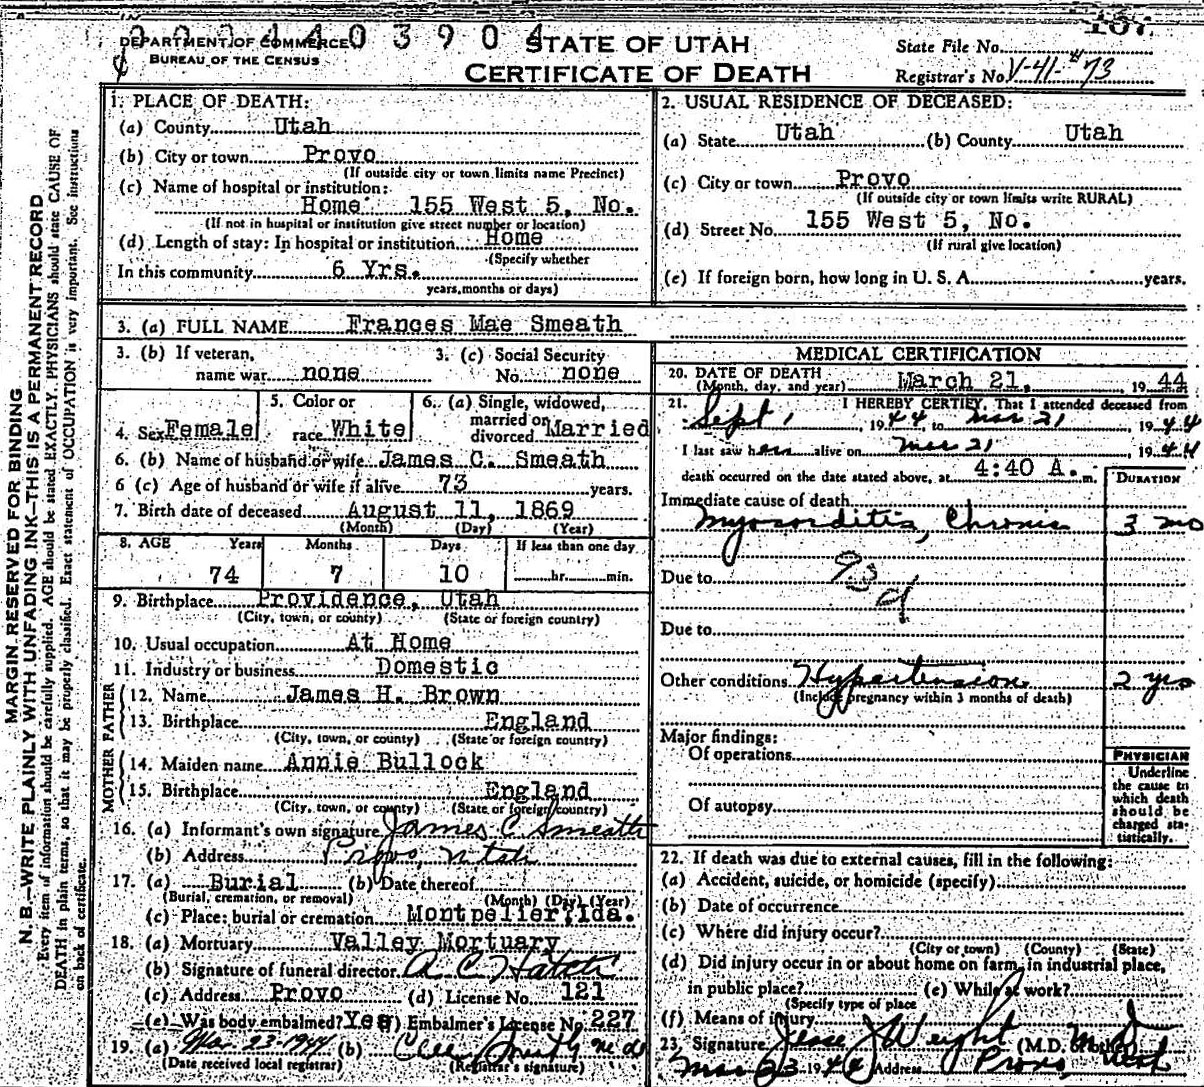 0 0 0 4 4 0 3 9 0 4
DEPARTMENT OF COMMERCE
BUREAU OF THE CENSUS
STATE OF UTAH
CERTIFICATE OF DEATH
State File No.
Registrar's No. V-41-#73
MARGIN RESERVED FOR BINDING
N. B.—WRITE PLAINLY WITH UNFADING INK—THIS IS A PERMANENT RECORD
Every item of information should be carefully supplied. AGE should be stated EXACTLY. PHYSICIANS should state CAUSE OF
DEATH in plain terms, so that it may be properly classified. Exact statement of OCCUPATION is very important. See instructions
on back of certificate.
1. PLACE OF DEATH:
(a) County Utah
(b) City or town Provo
(If outside city or town limits name Precinct)
(c) Name of hospital or institution:
Home 155 West 5, No.
(If not in hospital or institution give street number or location)
(d) Length of stay: In hospital or institution Home
(Specify whether
In this community 6 Yrs.
years, months or days)
2. USUAL RESIDENCE OF DECEASED:
(a) State Utah (b) County Utah
(c) City or town Provo
(If outside city or town limits write RURAL)
(d) Street No. 155 West 5, No.
(If rural give location)
(e) If foreign born, how long in U. S. A. years.
3. (a) FULL NAME Frances Mae Smeath
3. (b) If veteran,
name war none
3. (c) Social Security
No. none
4. Sex Female
5. Color or
race White
6. (a) Single, widowed,
married or
divorced Married
6. (b) Name of husband or wife James C. Smeath
6 (c) Age of husband or wife if alive 73 years.
7. Birth date of deceased August 11, 1869
(Month) (Day) (Year)
8. AGE Years Months Days If less than one day
74 7 10 hr. min.
9. Birthplace Providence, Utah
(City, town, or county) (State or foreign country)
10. Usual occupation At Home
11. Industry or business Domestic
FATHER
12. Name James H. Brown
13. Birthplace England
(City, town, or county) (State or foreign country)
MOTHER
14. Maiden name Annie Bullock
15. Birthplace England
(City, town, or county) (State or foreign country)
16. (a) Informant's own signature James C Smeath
(b) Address Provo, Utah
17. (a) Burial (b) Date thereof
(Burial, cremation, or removal) (Month) (Day) (Year)
(c) Place: burial or cremation Montpelier, Ida.
18. (a) Mortuary Valley Mortuary
(b) Signature of funeral director A C Hatch
(c) Address Provo (d) License No. 121
(e) Was body embalmed? Yes (f) Embalmer's License No. 227
19. (a) Mar. 23-1944 (b)
(Date received local registrar) (Registrar's signature)
MEDICAL CERTIFICATION
20. DATE OF DEATH
(Month, day, and year) March 21, 1944
21. I HEREBY CERTIFY, That I attended deceased from
Sept 1, 1944 to Mar 21, 1944
I last saw her alive on Mar 21 1944
death occurred on the date stated above, at 4:40 A. m.
DURATION
Immediate cause of death
Myocorditis, Chronic 3 mo
Due to 93 d
Due to
Other conditions Hypertension 2 yrs
(Include pregnancy within 3 months of death)
Major findings:
Of operations
Of autopsy
PHYSICIAN
Underline
the cause to
which death
should be
charged sta-
tistically.
22. If death was due to external causes, fill in the following:
(a) Accident, suicide, or homicide (specify)
(b) Date of occurrence
(c) Where did injury occur?
(City or town) (County) (State)
(d) Did injury occur in or about home on farm, in industrial place,
in public place? (e) While at work?
(Specify type of place
(f) Means of injury
23. Signature Jesse J Weight M D (M.D. or other)
Mar 23 1944 Address Provo, Utah